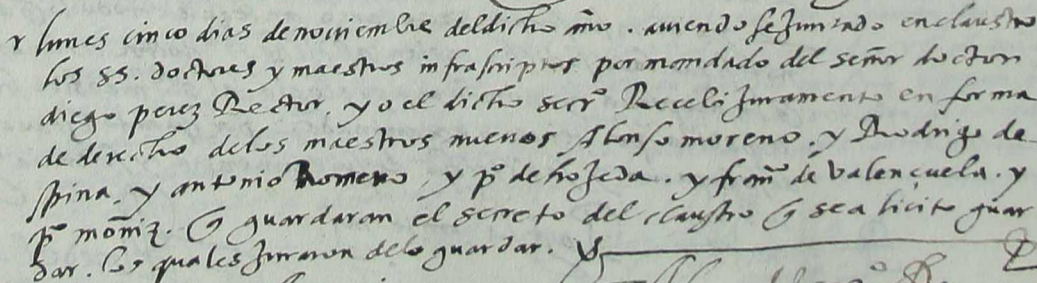 y lunes cinco dias de noviembre del dicho año. aviendose Juntado en claustro
los ss. doctores y maestros infrascriptos por mandado del señor doctor
diego perez Rector. yo el dicho secrº Recebi Juramento en forma
de derecho de los maestros nuevos Alonso moreno. y Rodrigo de
spina. y antonio Romero y pº de hojeda. y franco de valençuela. y
pº moniz. q guardaran el secreto del claustro q sea licito guar
dar. los quales Juraron de lo guardar.